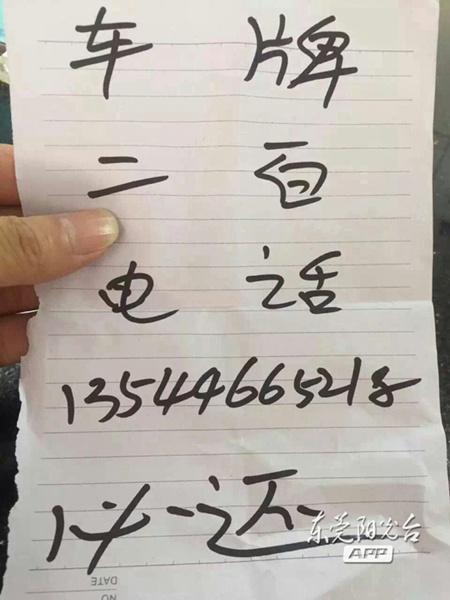 车 牌
二 百
电 话
13544665218
必还
东莞阳光台
APP
DATE
NO